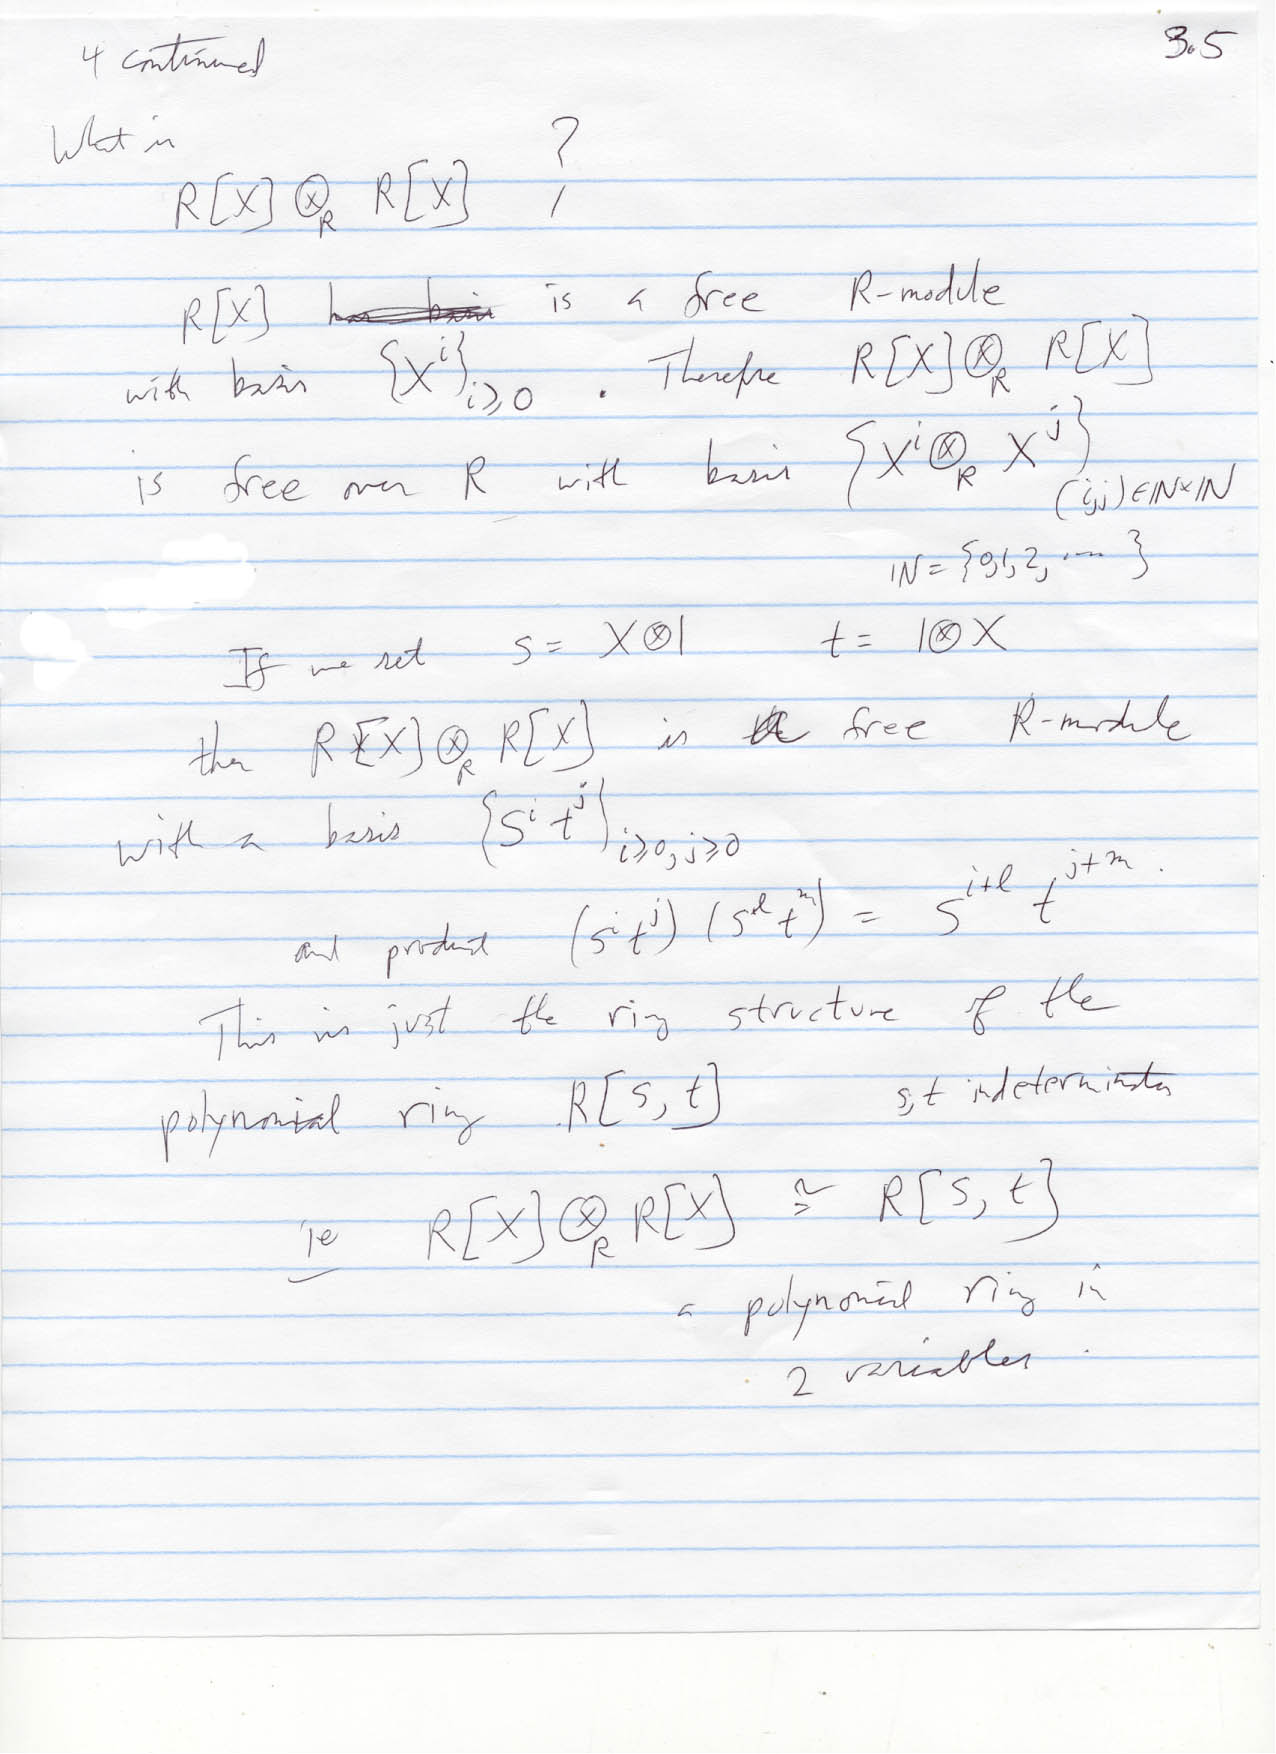 4 continued 3.5
What is
R[X] ⊗_R R[X] ?
R[X] is a free R-module
with basis {X^i}_{i≥0}. Therefore R[X] ⊗_R R[X]
is free over R with basis {X^i ⊗_R X^j}_{(i,j)∈ℕ×ℕ}
ℕ = {0,1,2, ....}
If we set s = X⊗1 t = 1⊗X
then R[X] ⊗_R R[X] is free R-module
with a basis {s^i t^j}_{i≥0, j≥0}
and product (s^i t^j) (s^l t^m) = s^{i+l} t^{j+m}.
This is just the ring structure of the
polynomial ring R[s,t] s,t indeterminates
ie R[X] ⊗_R R[X] ≅ R[s,t]
a polynomial ring in
2 variables.